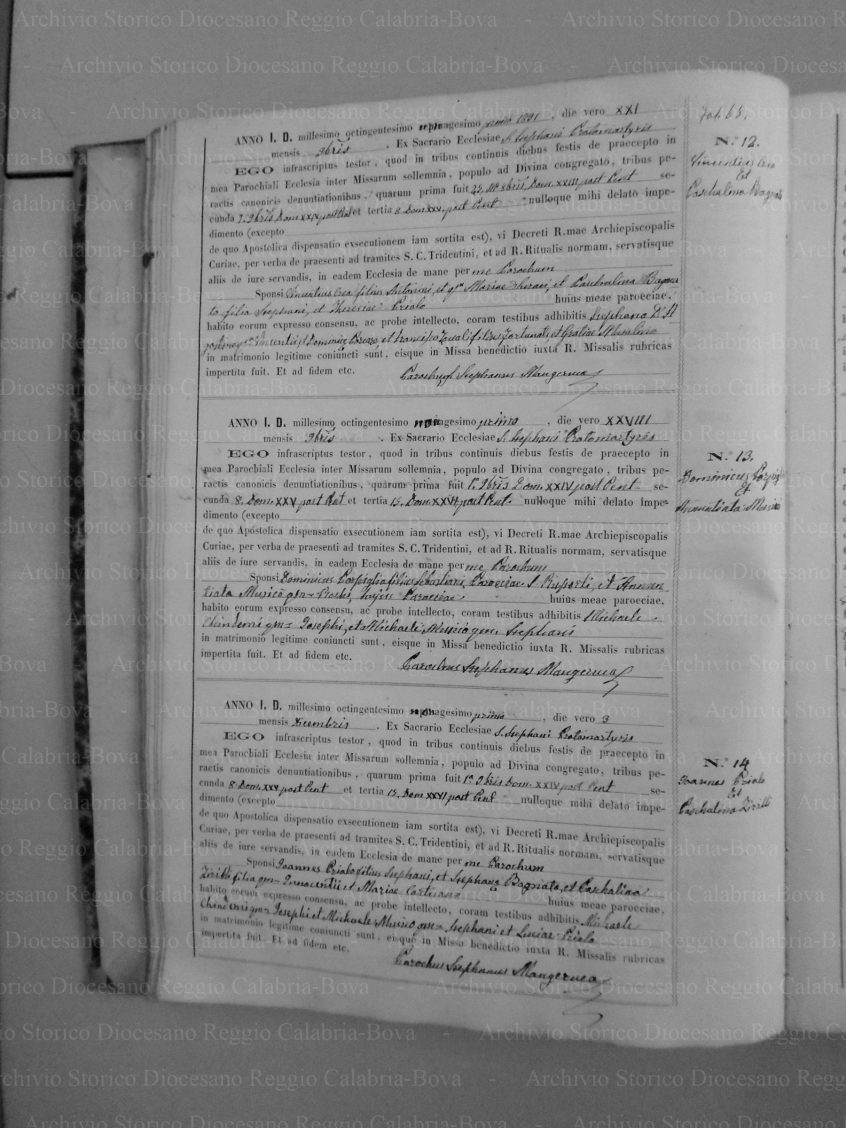 Archivio Storico Diocesano Reggio Calabria-Bova
Fol. 65.
ANNO I. D. millesimo octingentesimo nonagesimo primo 1891, die vero XXI
mensis 9bris. Ex Sacrario Ecclesiae S. Stephani Protomartyris
EGO infrascriptus testor, quod in tribus continuis diebus festis de praecepto in
mea Parochiali Ecclesia inter Missarum sollemnia, populo ad Divina congregato, tribus pe-
ractis canonicis denuntiationibus, quarum prima fuit 25. 8bris, Dom. XXIII post Pent se-
cunda 1. 9bris Dom XXIV post Pent et tertia 8. Dom XXV. post Pent nulloque mihi delato impe-
dimento (excepto
de quo Apostolica dispensatio exsecutionem iam sortita est), vi Decreti R.mae Archiepiscopalis
Curiae, per verba de praesenti ad tramites S. C. Tridentini, et ad R. Ritualis normam, servatisque
aliis de iure servandis, in eadem Ecclesia de mane per me Parochum
Sponsi Vincentius filius Antonini, et qm Mariae et Paschalina Bagna
to filia Stephani, et Theresiae Priolo huius meae paroeciae,
habito eorum expresso consensu, ac probe intellecto, coram testibus adhibitis Stephano
Vincentii, et Dominica et Francisco filio Fortunati, et Gratiae Musolino
in matrimonio legitime coniuncti sunt, eisque in Missa benedictio iuxta R. Missalis rubricas
impertita fuit. Et ad fidem etc. Parochus Stephanus Mangeruca
N.° 12.
Vincentius
Et
Paschalina Bagnato
ANNO I. D. millesimo octingentesimo nonagesimo primo, die vero XXVIII
mensis 9bris. Ex Sacrario Ecclesiae S. Stephani Protomartyris
EGO infrascriptus testor, quod in tribus continuis diebus festis de praecepto in
mea Parochiali Ecclesia inter Missarum sollemnia, populo ad Divina congregato, tribus pe-
ractis canonicis denuntiationibus, quarum prima fuit 1a 9bris Dom. XXIV post Pent se-
cunda 8. Dom. XXV post Pent et tertia 15. Dom. XXVI post Pent. nulloque mihi delato impe-
dimento (excepto
de quo Apostolica dispensatio exsecutionem iam sortita est), vi Decreti R.mae Archiepiscopalis
Curiae, per verba de praesenti ad tramites S. C. Tridentini, et ad R. Ritualis normam, servatisque
aliis de iure servandis, in eadem Ecclesia de mane per me Parochum
Sponsi Dominicus filius Sebastiani, Paroeciae S. Ruperti, et Annun
tiata Musicò qm Rochi, hujus Paroeciae. huius meae paroeciae,
habito eorum expresso consensu, ac probe intellecto, coram testibus adhibitis Michaele
Chindemi qm Josephi, et Michaele Musicò qm Stephani
in matrimonio legitime coniuncti sunt, eisque in Missa benedictio iuxta R. Missalis rubricas
impertita fuit. Et ad fidem etc. Parochus Stephanus Mangeruca
N.° 13.
Dominicus
Et
Annuntiata Musicò
ANNO I. D. millesimo octingentesimo nonagesimo primo, die vero 3
mensis Xcembris. Ex Sacrario Ecclesiae S. Stephani Protomartyris
EGO infrascriptus testor, quod in tribus continuis diebus festis de praecepto in
mea Parochiali Ecclesia inter Missarum sollemnia, populo ad Divina congregato, tribus pe-
ractis canonicis denuntiationibus, quarum prima fuit 1a 9bris Dom. XXIV post Pent
cunda 8. Dom. XXV post Pent et tertia 15. Dom XXVI post Pent nulloque mihi delato impe-
dimento (excepto
de quo Apostolica dispensatio exsecutionem iam sortita est), vi Decreti R.mae Archiepiscopalis
Curiae, per verba de praesenti ad tramites S. C. Tridentini, et ad R. Ritualis normam, servatisque
aliis de iure servandis, in eadem Ecclesia de mane per me Parochum
Sponsi Joannes Priolo filius Stephani, et Stephana Bagnato, et Paschalina
Zirilli filia qm Innocentii et Mariae huius meae paroeciae,
habito eorum expresso consensu, ac probe intellecto, coram testibus adhibitis Michaele
Chindemi qm Josephi et Michaele Musicò qm Stephani et Luciae Priolo
in matrimonio legitime coniuncti sunt, eisque in Missa benedictio iuxta R. Missalis rubricas
impertita fuit. Et ad fidem etc.
Parochus Stephanus Mangeruca
N.° 14
Joannes Priolo
Et
Paschalina Zirilli